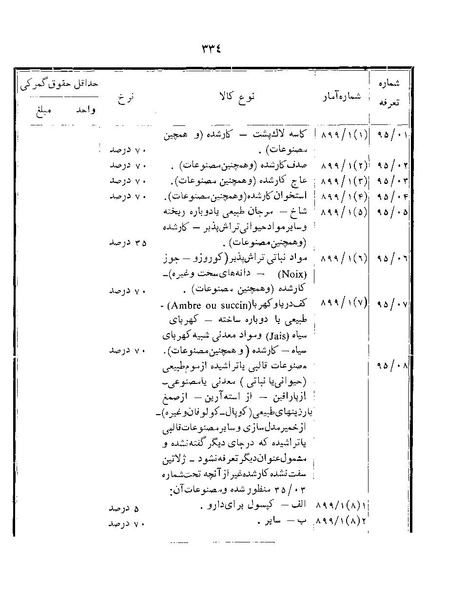 ۳۳٤
شماره تعرفه | شماره آمار | نوع کالا | نرخ | حداقل حقوق گمرکی واحد مبلغ
۹۵/۰۱ | ۸۹۹/۱(۱) | کاسه لاک‌پشت – کارشده (و همچنین
مصنوعات). | ۷۰ درصد
۹۵/۰۲ | ۸۹۹/۱(۲) | صدف کارشده (وهمچنین مصنوعات). | ۷۰ درصد
۹۵/۰۳ | ۸۹۹/۱(۳) | عاج کارشده (وهمچنین مصنوعات). | ۷۰ درصد
۹۵/۰۴ | ۸۹۹/۱(۴) | استخوان کارشده (وهمچنین مصنوعات). | ۷۰ درصد
۹۵/۰۵ | ۸۹۹/۱(۵) | شاخ – مرجان طبیعی یا دوباره ریخته
وسایر مواد حیوانی تراش‌پذیر – کارشده
(وهمچنین مصنوعات). | ۳۵ درصد
۹۵/۰۶ | ۸۹۹/۱(۶) | مواد نباتی تراش‌پذیر (کوروزو – جوز
(Noix) – دانه‌های سخت وغیره) –
کارشده (وهمچنین مصنوعات). | ۷۰ درصد
۹۵/۰۷ | ۸۹۹/۱(۷) | کف دریا و کهربا (Ambre ou succin) -
طبیعی یا دوباره ساخته – کهربای
سیاه (Jais) ومواد معدنی شبیه کهربای
سیاه – کارشده (و همچنین مصنوعات). | ۷۰ درصد
۹۵/۰۸ | مصنوعات قالبی یا تراشیده ازموم طبیعی
(حیوانی یا نباتی) معدنی یا مصنوعی –
ازپارافین – از استه‌آرین – ازصمغ
یا رزینهای طبیعی (کوپال – کولوفان وغیره) –
ازخمیر مدل سازی و سایر مصنوعات قالبی
یا تراشیده که درجای دیگر گفته نشده و
مشمول عنوان دیگر تعرفه نشود – ژلاتین
سفت نشده کارشده غیر از آنچه تحت شماره
۳۵/۰۳ منظور شده و مصنوعات آن:
۸۹۹/۱(۸)۱ | الف – کپسول برای دارو. | ۵ درصد
۸۹۹/۱(۸)۲ | ب – سایر. | ۷۰ درصد